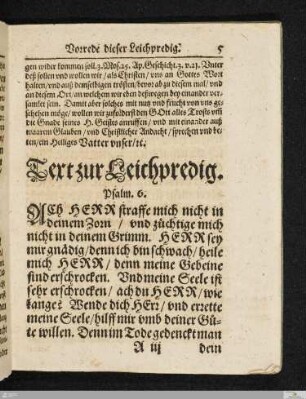 Vorrede dieser Leichpredig. 5
gen wider kommen soll. 3. Mos. 25. Ap. Geschicht. 3. v. 21. Unter
deß sollen und wollen wir / als Christen / uns an Gottes Wort
halten / und auß demselbigen trösten / bevorab zu diesem mal / und
an diesem Ort / an welchem wir eben deßwegen bey einander ver-
samlet sein. Damit aber solches mit nutz und frucht von uns ge-
schehen möge / wollen wir zuforderst den GOtt alles Trosts umb
die Gnade seines H. Geistes anruffen / und mit einander auß
waarem Glauben / und Christlicher Andacht / sprechen und be-
ten / ein Heiliges Vatter unser / ꝛc.
Text zur Leichpredig.
Psalm. 6.
ACh HERR straffe mich nicht in
deinem Zorn / und züchtige mich
nicht in deinem Grimm. HERR sey
mir gnädig / denn ich bin schwach / heile
mich HERR / denn meine Gebeine
sind erschrocken. Und meine Seele ist
sehr erschrocken / ach du HERR / wie
lange? Wende dich HErr / und errette
meine Seele / hilff mir umb deiner Gü-
te willen. Denn im Tode gedenckt man
A iij dein